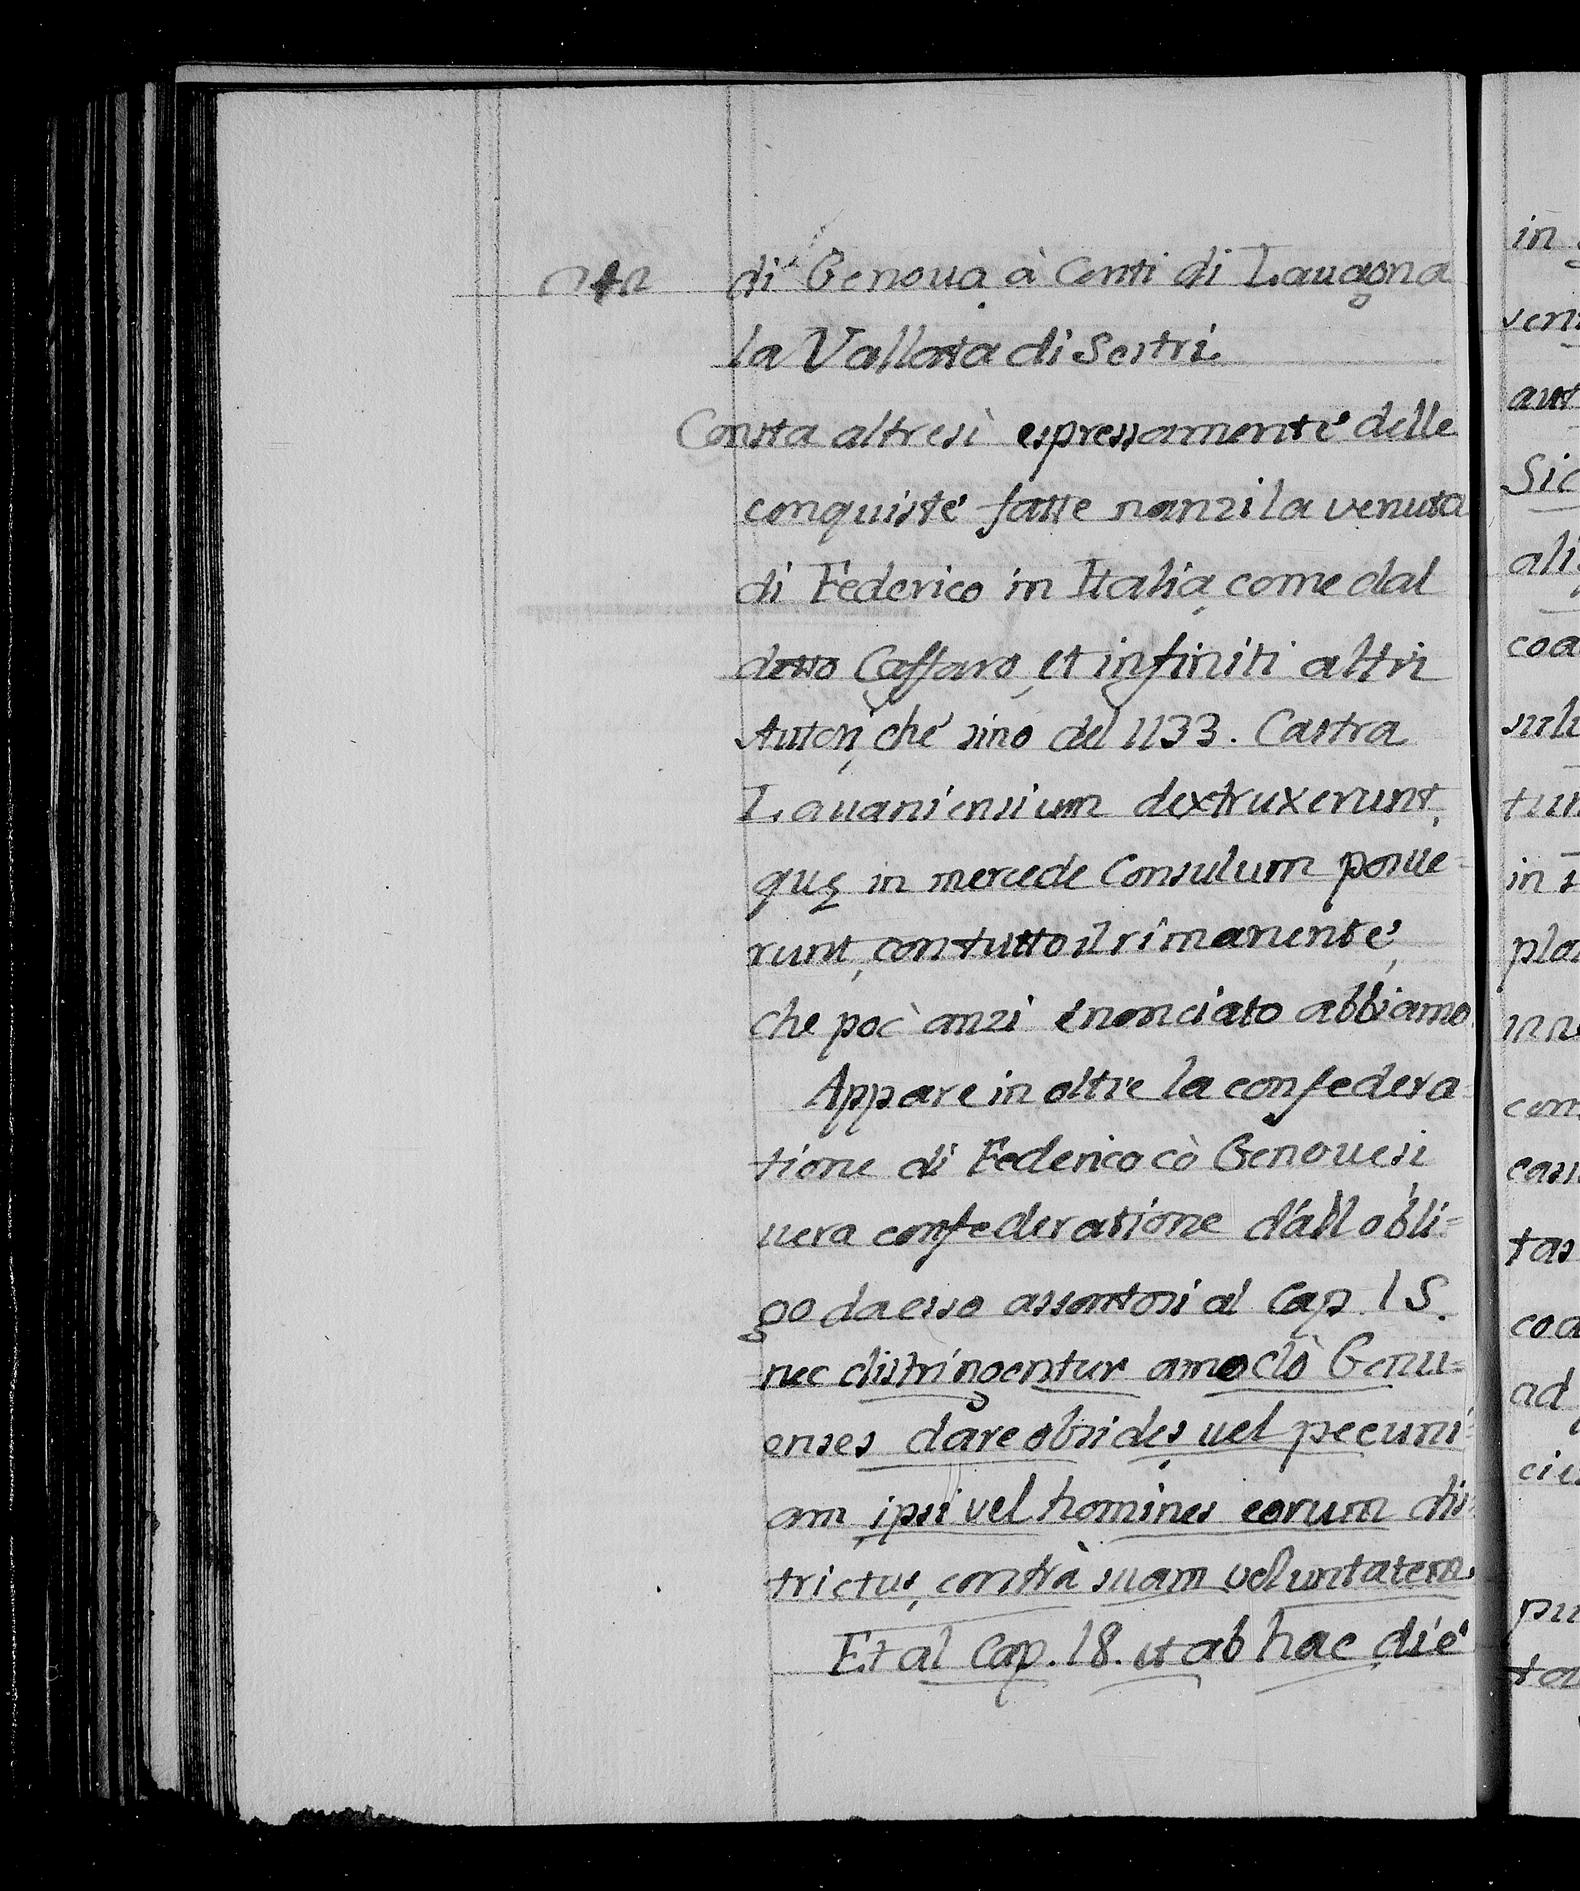 di Genoua à Conti di Lauagna
la Vallata di Sestri.
Consta altresì espressamente delle
conquiste fatte nanzi la venuta
di Federico in Italia, come dal
detto Caffaro, et infiniti altri
Autori, che sino del 1133. Castra
Lauaniensium dextruxerunt,
quę in mercede Consulum posue=
runt, con tutto il rimanente,
che poc' anzi enonciato abbiamo.
Appare in oltre la confedera=
tione di Federico cò Genouesi
uera confederatione dall obli=
go da esso assontosi al Cap. 15.
nec distringentur amodò Genu=
enses dare obsides, uel pecuni=
am ipsi vel homines eorum dis=
trictus, contrà suam voluntatem.
Et al Cap. 18. ut ab hac die
in
aut
Sic
ali
coa
tun
in
pla
inne
con
cass
tas
coa
ad
pu